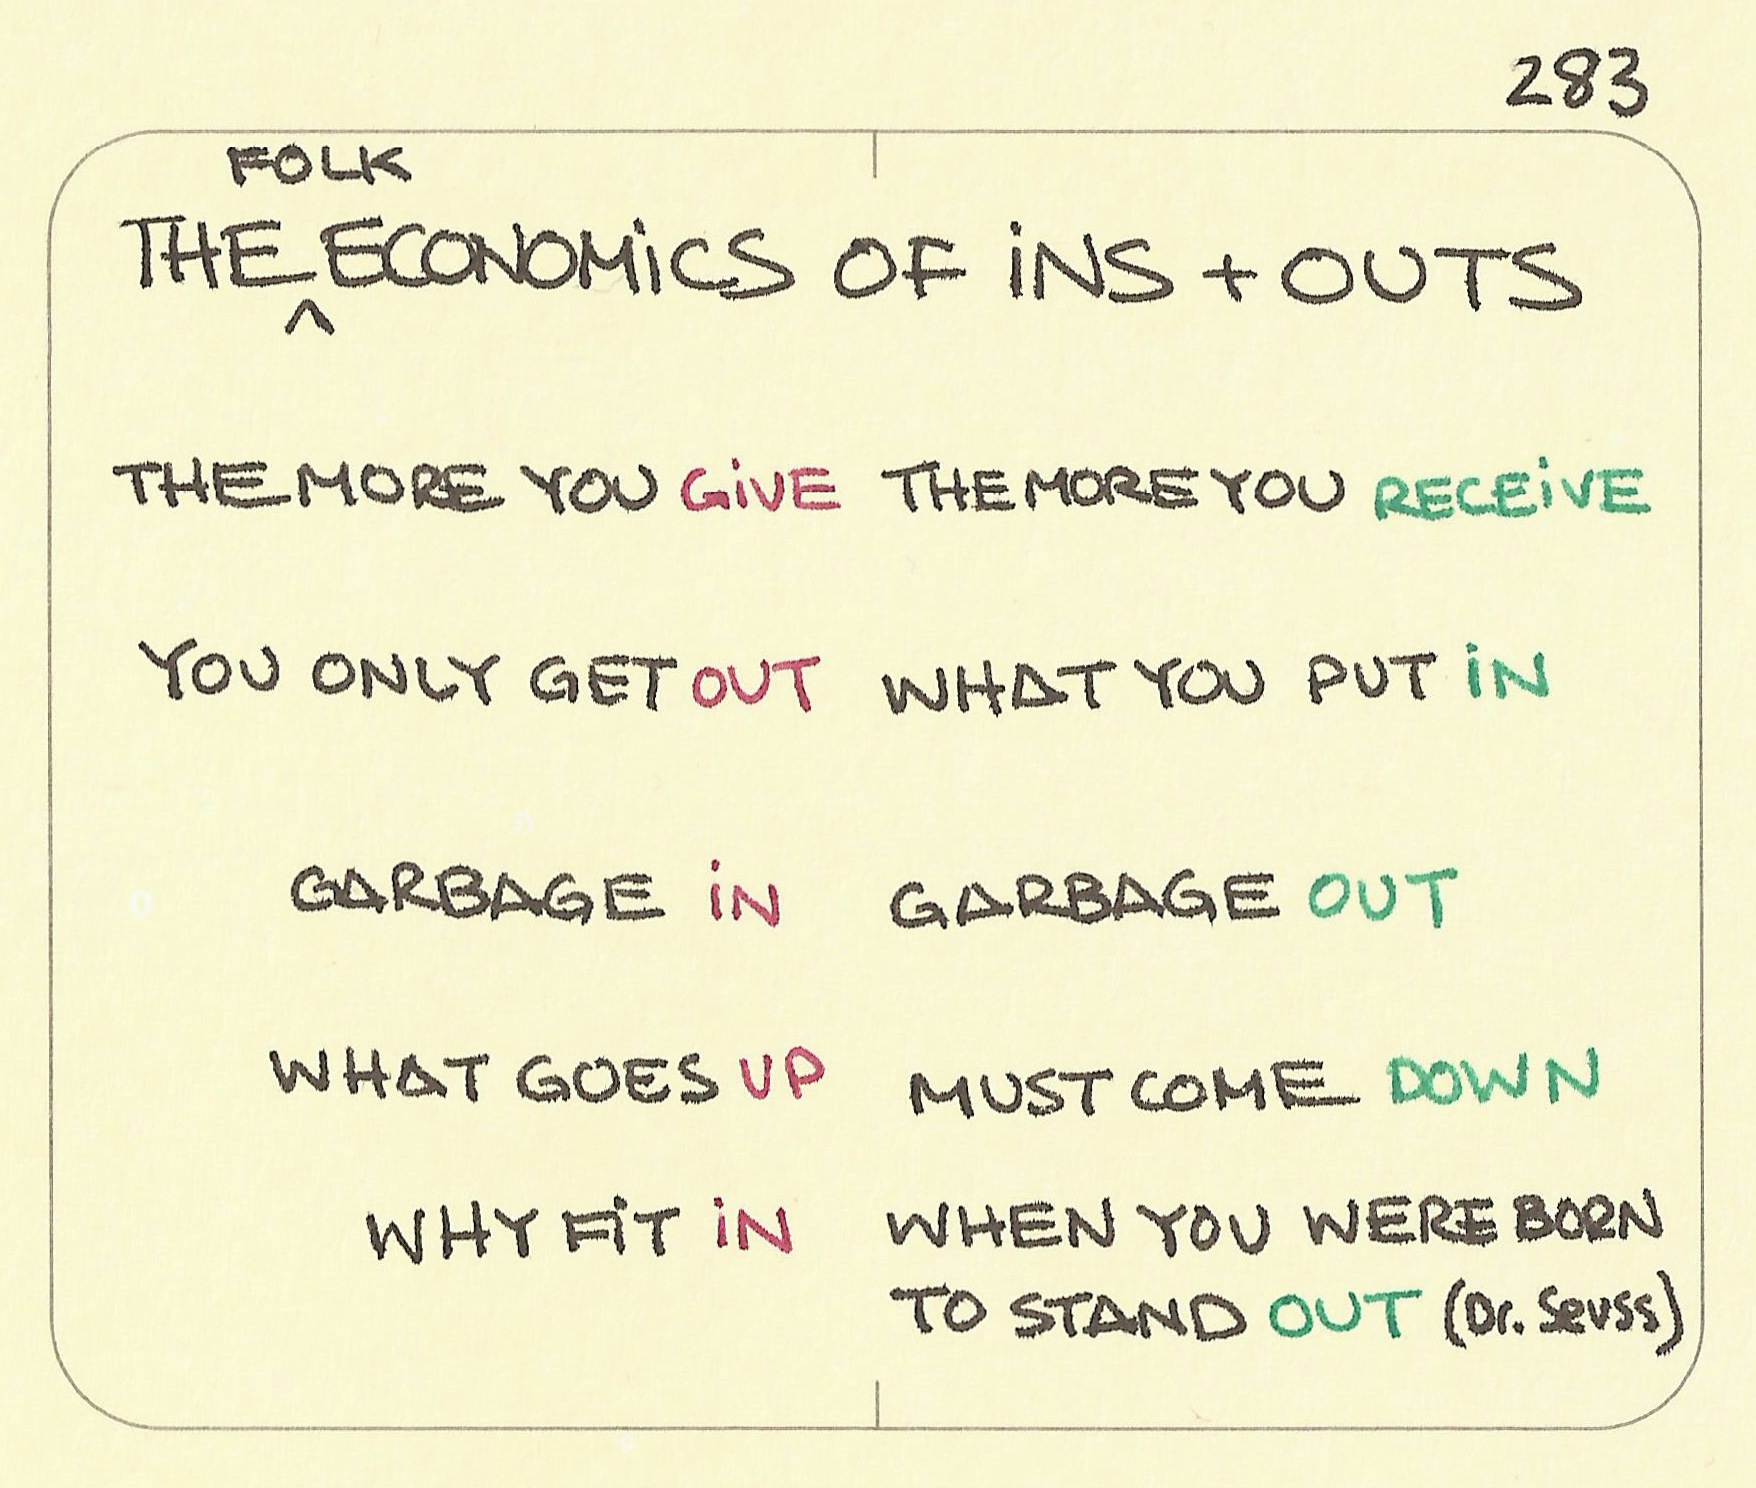 283
FOLK
THE ^ ECONOMiCS OF iNS + OUTS
THE MORE YOU GiVE THE MORE YOU RECEiVE
YOU ONLY GET OUT WHAT YOU PUT iN
GARBAGE iN GARBAGE OUT
WHAT GOES UP MUST COME DOWN
WHY FiT iN WHEN YOU WERE BORN
TO STAND OUT (Dr. Seuss)